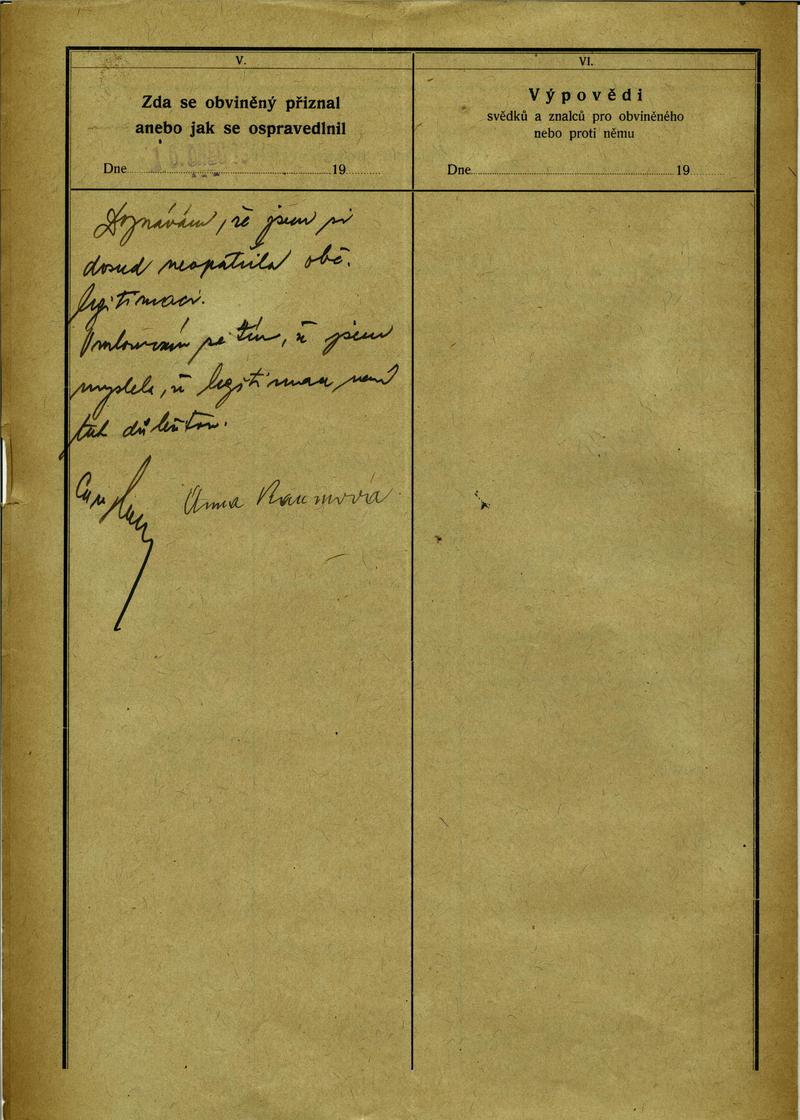 V.
Zda se obviněný přiznal
anebo jak se ospravedlnil
Dne 19
Doznávám, že jsem si
dosud neopatřila obč.
legitimaci.
Omlouvám se tím, ž jsem
myslela, ž legitimace není
tak důležitou.
Anna Raumová
VI.
Výpovědi
svědků a znalců pro obviněného
nebo proti němu
Dne 19